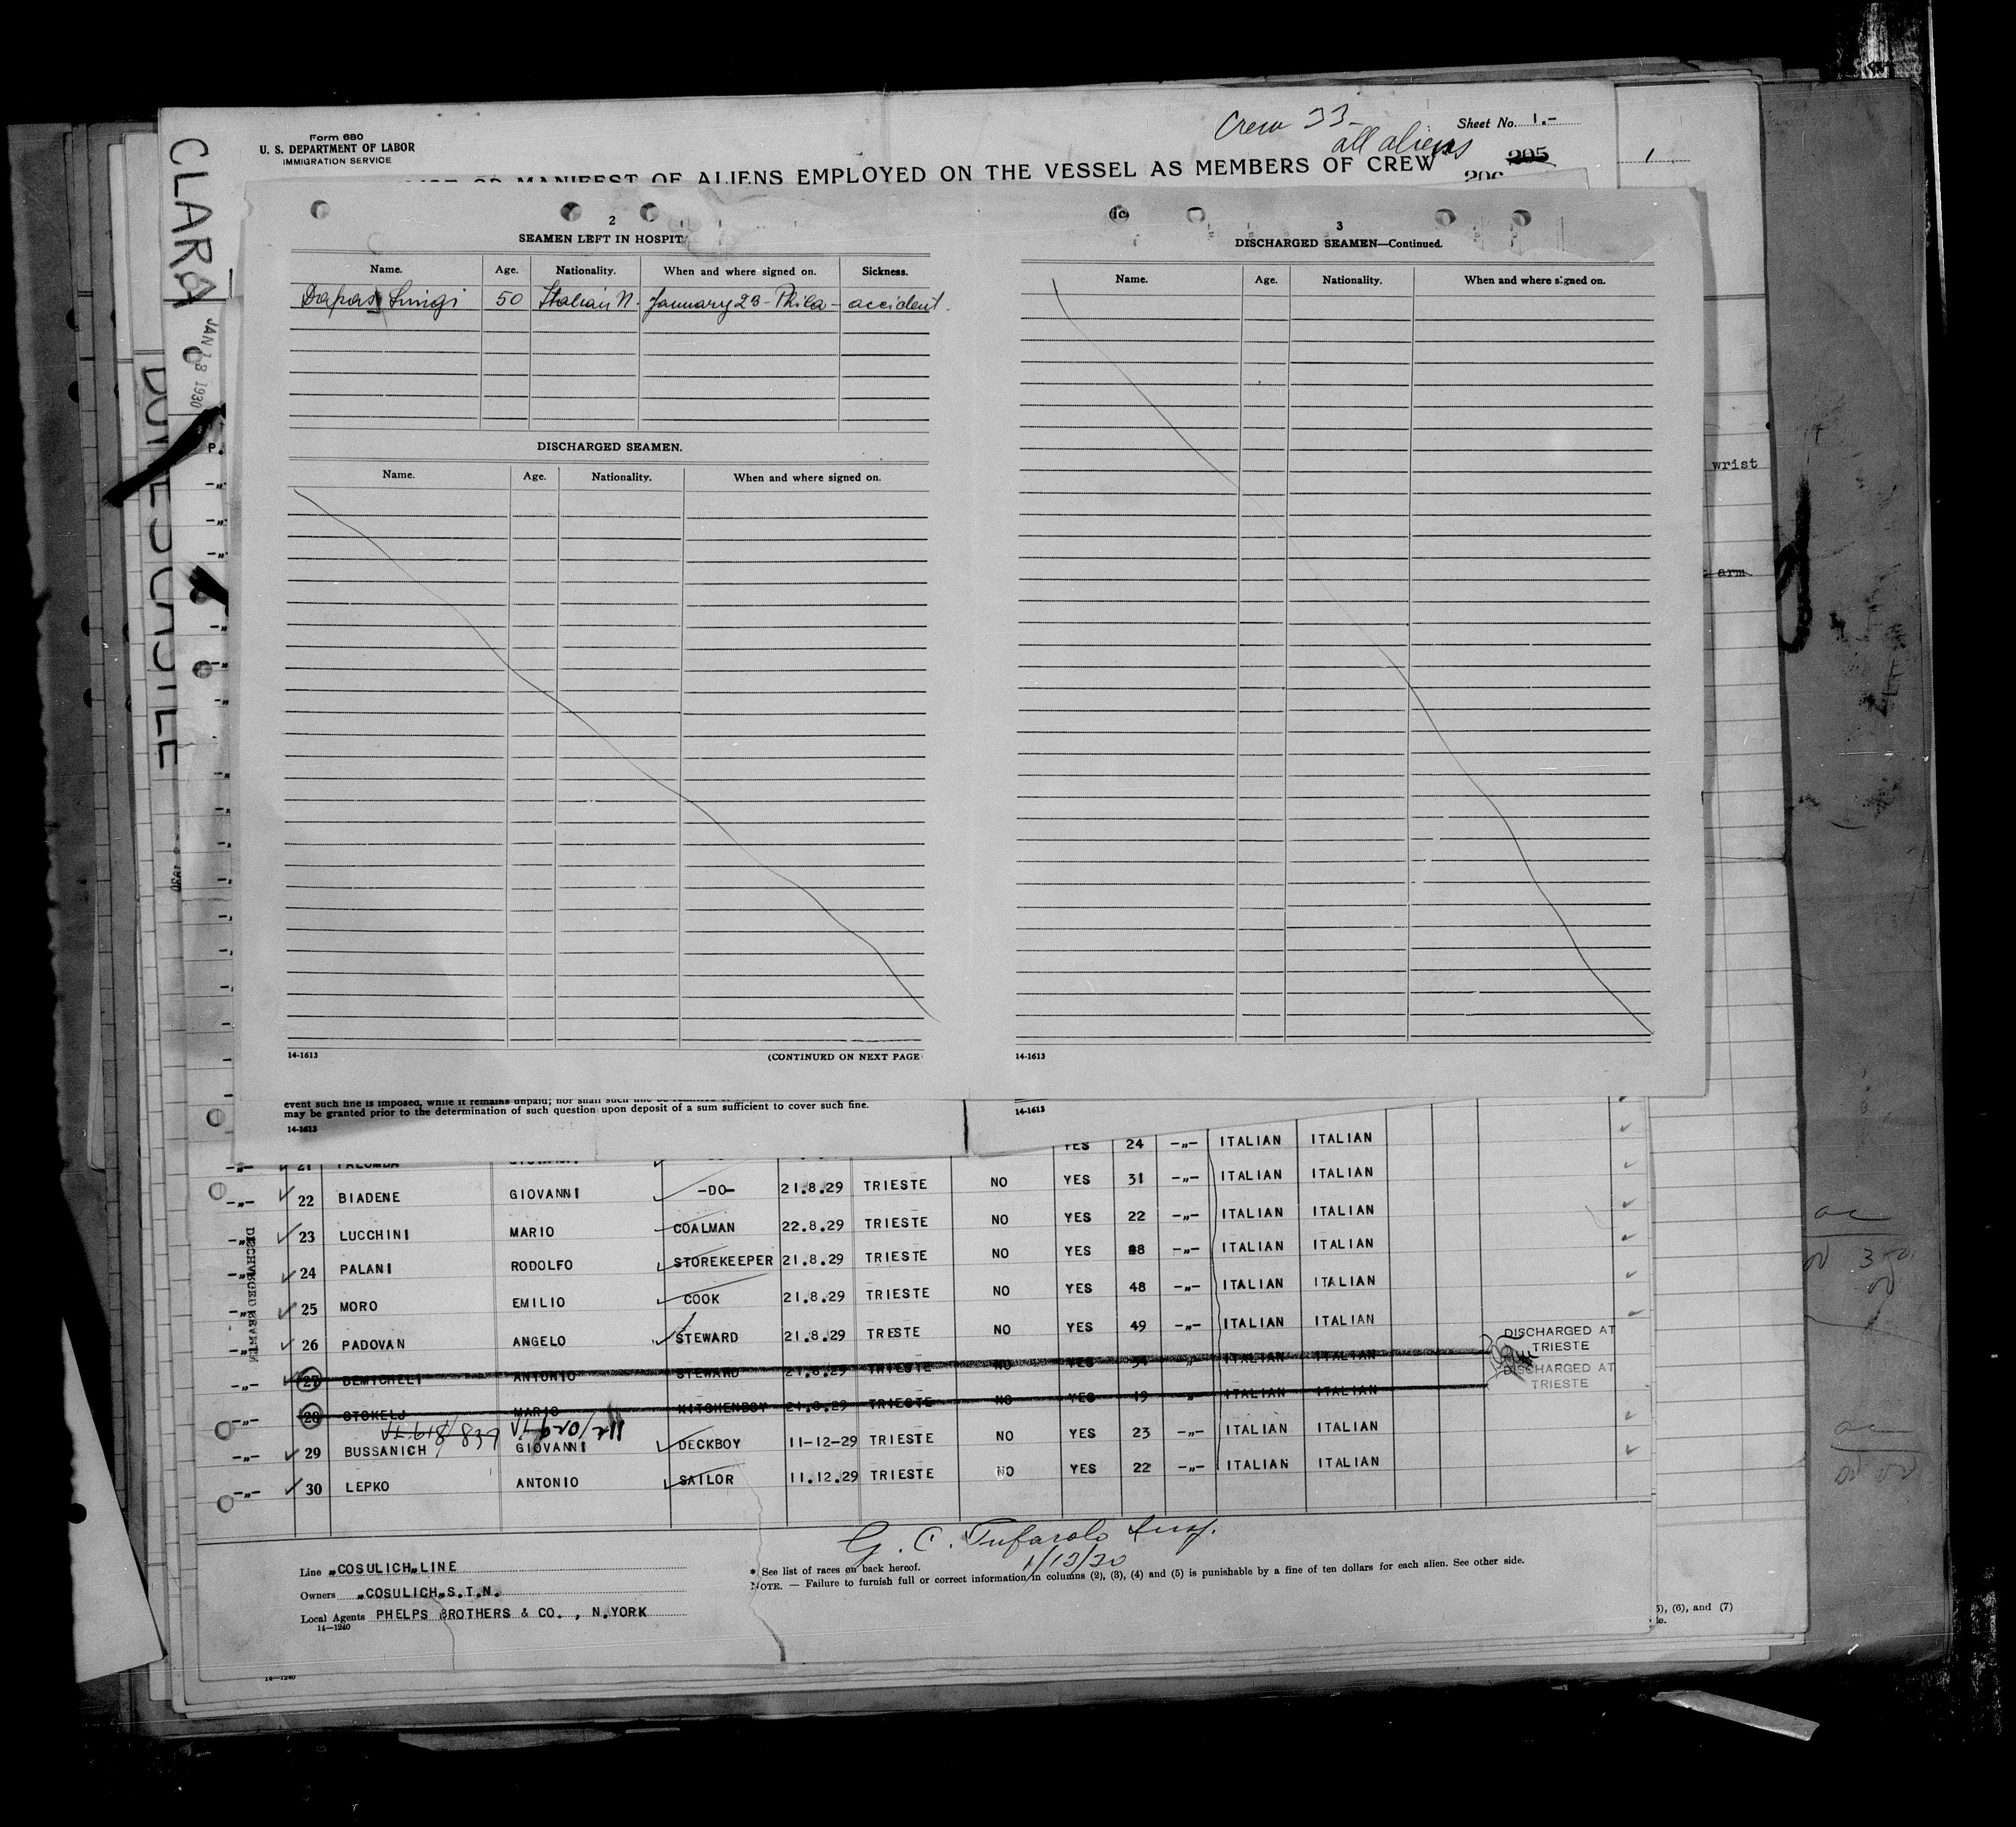 Form 680
U. S. DEPARTMENT OF LABOR
IMMIGRATION SERVICE
Crew 33-
all aliens
Sheet No. 1.-
205
206
1
MANIFEST OF ALIENS EMPLOYED ON THE VESSEL AS MEMBERS OF CREW
CLARA
JAN 13 1930
2
SEAMEN LEFT IN HOSPIT
Name. Age. Nationality. When and where signed on. Sickness.
50 Italian N. January 23 - Phila - accident.
DISCHARGED SEAMEN.
Name. Age. Nationality. When and where signed on.
14-1613 (CONTINUED ON NEXT PAGE
3
DISCHARGED SEAMEN—Continued.
Name. Age. Nationality. When and where signed on.
14-1613
wrist
arm
event such fine is imposed, while it remains unpaid; nor shall such
may be granted prior to the determination of such question upon deposit of a sum sufficient to cover such fine.
14-1613
14-1613
YES 24 -„- ITALIAN ITALIAN
-„- 21 PALOMBA GIOVANNI
-„- 22 BIADENE GIOVANNI -DO- 21.8.29 TRIESTE NO YES 31 -„- ITALIAN ITALIAN
-„- 23 LUCCHINI MARIO COALMAN 22.8.29 TRIESTE NO YES 22 -„- ITALIAN ITALIAN
-„- 24 PALANI RODOLFO STOREKEEPER 21.8.29 TRIESTE NO YES 38 -„- ITALIAN ITALIAN
-„- 25 MORO EMILIO COOK 21.8.29 TRIESTE NO YES 48 -„- ITALIAN ITALIAN
-„- 26 PADOVAN ANGELO STEWARD 21.8.29 TRESTE NO YES 49 -„- ITALIAN ITALIAN
-„- 27 DEMICHELI ANTONIO STEWARD 21.8.29 TRIESTE NO YES 34 -„- ITALIAN ITALIAN DISCHARGED AT TRIESTE
-„- 28 STOKELJ MARIO KITCHENBOY 21.8.29 TRIESTE NO YES 19 -„- ITALIAN ITALIAN DISCHARGED AT TRIESTE
-„- 29 BUSSANICH GIOVANNI DECKBOY 11-12-29 TRIESTE NO YES 23 -„- ITALIAN ITALIAN
-„- 30 LEPKO ANTONIO SAILOR 11.12.29 TRIESTE NO YES 22 -„- ITALIAN ITALIAN
G. C. Tufarolo Insp.
1/13/30
Line „COSULICH„LINE
Owners „COSULICH„S.T.N.
Local Agents PHELPS BROTHERS & CO., N.YORK
14—1240
* See list of races on back hereof.
NOTE. — Failure to furnish full or correct information in columns (2), (3), (4) and (5) is punishable by a fine of ten dollars for each alien. See other side.
5), (6), and (7)
14—1240